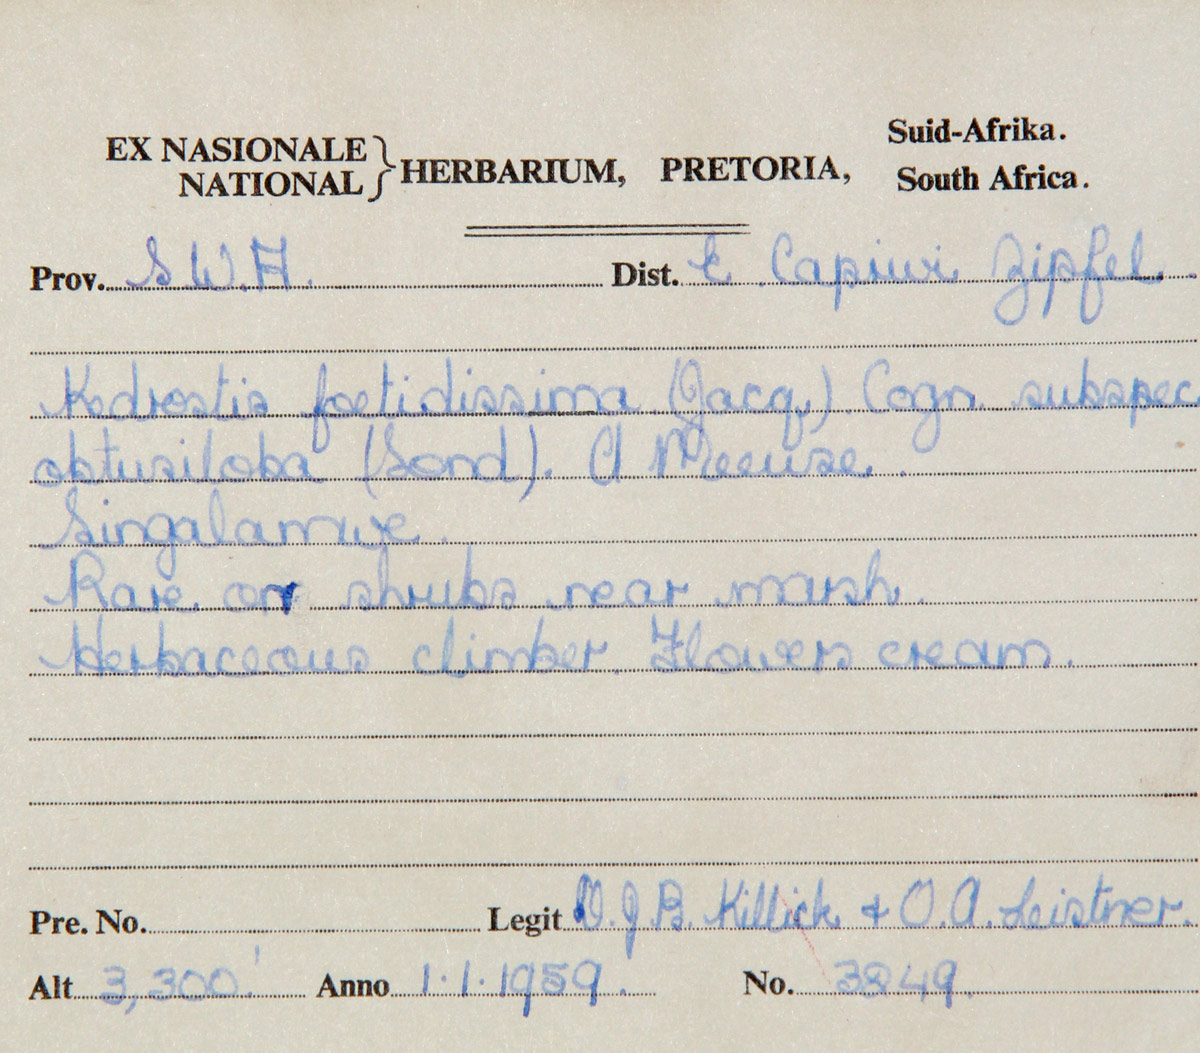 EX NASIONALE NATIONAL } HERBARIUM, PRETORIA, Suid-Afrika. South Africa.
Prov. S.W.A. Dist. E. Capriwi Zipfel.
Kedrostis foetidissima (Jacq.) Cogn. subspec
obtusiloba (Sond). A Meeuse.
Singalamwe.
Rare on shrubs near marsh.
Herbaceous climber. Flowers cream.
Pre. No. Legit D.J.B. Killick & O.A. Leistner.
Alt 3,300'. Anno 1.1.1959. No. 3249.